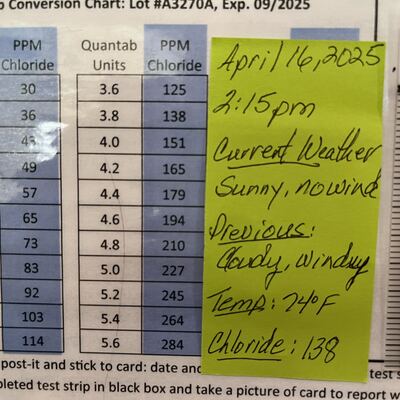 Conversion Chart: Lot #A3270A, Exp. 09/2025
PPM Chloride Quantab Units PPM Chloride
30 3.6 125
36 3.8 138
43 4.0 151
49 4.2 165
57 4.4 179
65 4.6 194
73 4.8 210
83 5.0 227
92 5.2 245
103 5.4 264
114 5.6 284
April 16, 2025
2:15pm
Current Weather
Sunny, no wind
Previous:
Cloudy, windy
Temp: 74°F
Chloride: 138
post-it and stick to card: date and
test s
pleted test strip in black box and take a picture of card to report w